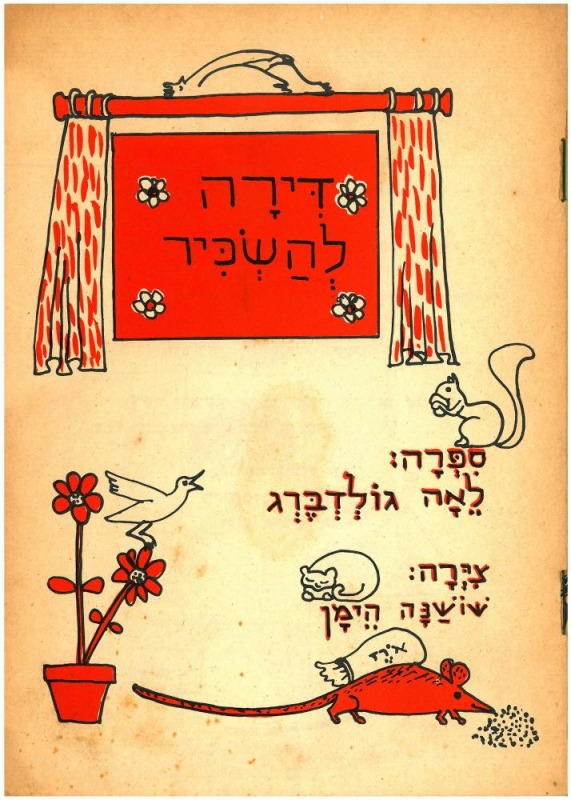 דִּירָה
לְהַשְׂכִּיר
סִפְּרָה:
לֵאָה גוֹלְדְבֶּרְג
צִיְּרָה:
שׁוֹשַׁנָּה הֵימָן
אורז